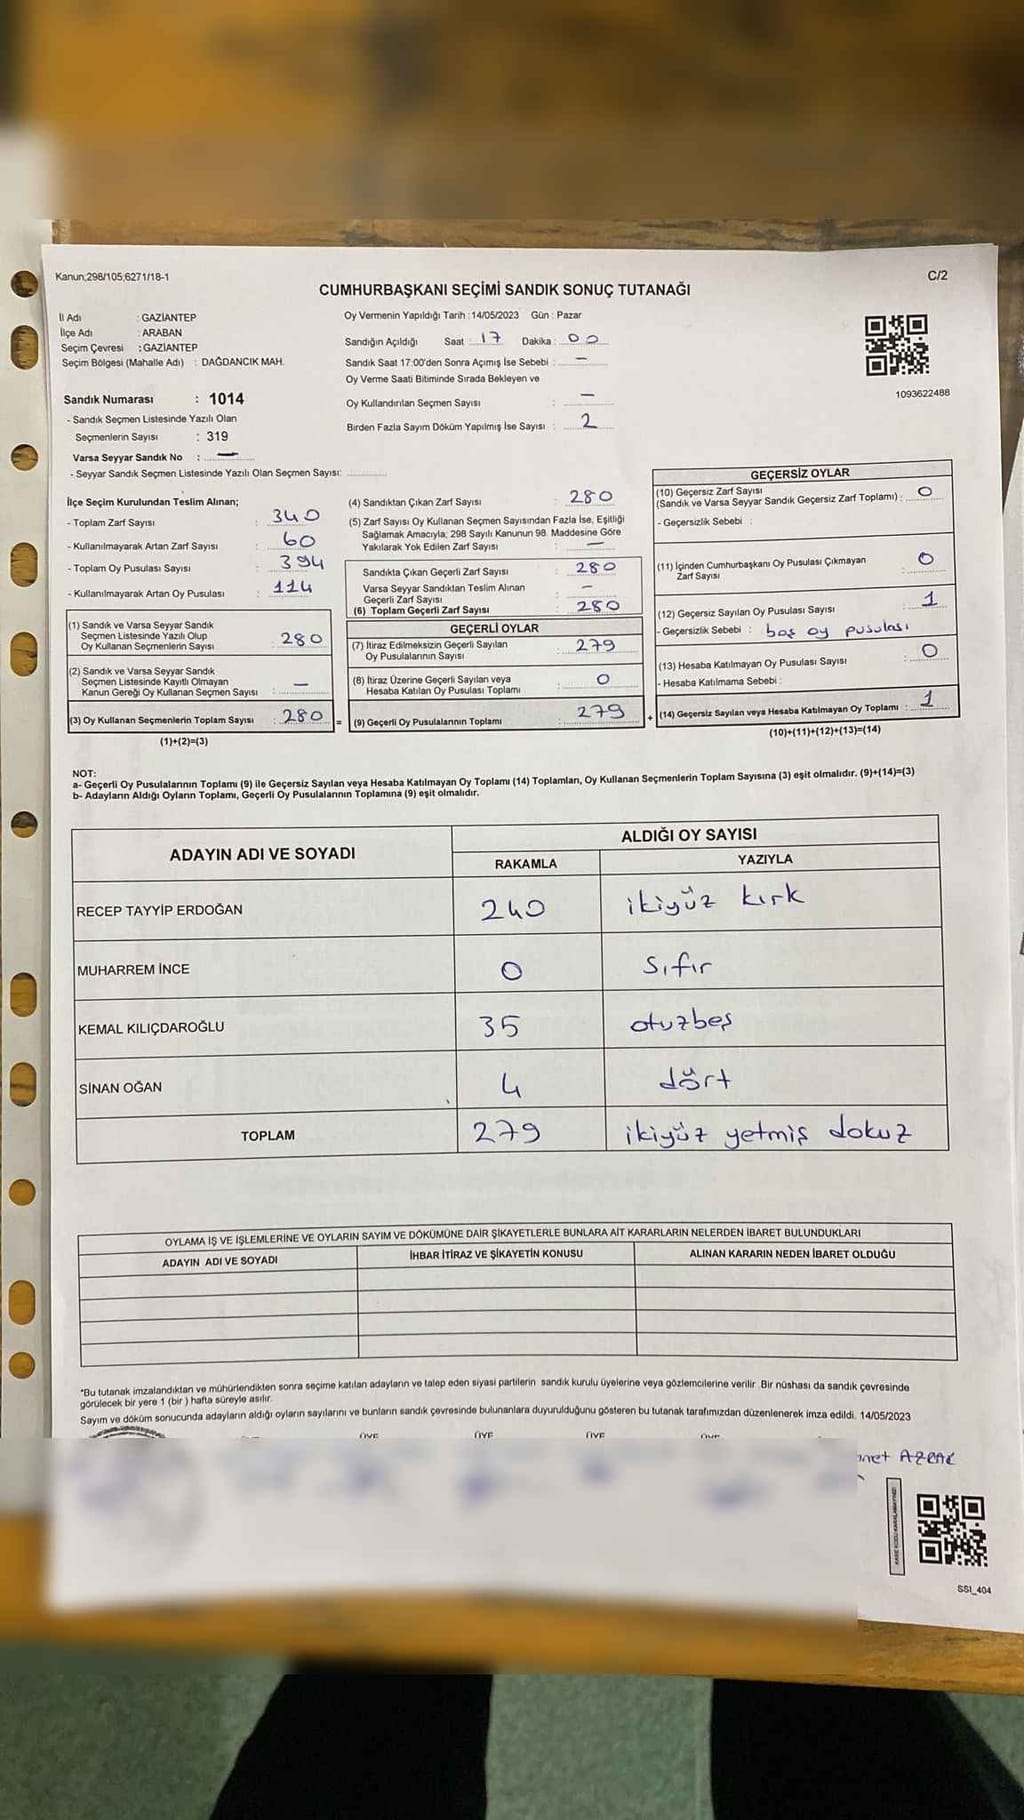 Kanun;298/105;6271/18-1
C/2
CUMHURBAŞKANI SEÇİMİ SANDIK SONUÇ TUTANAĞI
İl Adı : GAZİANTEP
İlçe Adı : ARABAN
Seçim Çevresi : GAZİANTEP
Seçim Bölgesi (Mahalle Adı) : DAĞDANCIK MAH.
Sandık Numarası : 1014
- Sandık Seçmen Listesinde Yazılı Olan
Seçmenlerin Sayısı : 319
Varsa Seyyar Sandık No : —
- Seyyar Sandık Seçmen Listesinde Yazılı Olan Seçmen Sayısı:
Oy Vermenin Yapıldığı Tarih : 14/05/2023 Gün : Pazar
Sandığın Açıldığı Saat : 17 Dakika : 00
Sandık Saat 17:00'den Sonra Açımış İse Sebebi : —
Oy Verme Saati Bitiminde Sırada Bekleyen ve
Oy Kullandırılan Seçmen Sayısı : —
Birden Fazla Sayım Döküm Yapılmış İse Sayısı : 2
1093622488
İlçe Seçim Kurulundan Teslim Alınan;
- Toplam Zarf Sayısı : 340
- Kullanılmayarak Artan Zarf Sayısı : 60
- Toplam Oy Pusulası Sayısı : 394
- Kullanılmayarak Artan Oy Pusulası : 114
(1) Sandık ve Varsa Seyyar Sandık
Seçmen Listesinde Yazılı Olup
Oy Kullanan Seçmenlerin Sayısı : 280
(2) Sandık ve Varsa Seyyar Sandık
Seçmen Listesinde Kayıtlı Olmayan
Kanun Gereği Oy Kullanan Seçmen Sayısı : —
(3) Oy Kullanan Seçmenlerin Toplam Sayısı : 280 =
(1)+(2)=(3)
(4) Sandıktan Çıkan Zarf Sayısı : 280
(5) Zarf Sayısı Oy Kullanan Seçmen Sayısından Fazla İse, Eşitliği
Sağlamak Amacıyla; 298 Sayılı Kanunun 98. Maddesine Göre
Yakılarak Yok Edilen Zarf Sayısı : —
Sandıkta Çıkan Geçerli Zarf Sayısı : 280
Varsa Seyyar Sandıktan Teslim Alınan
Geçerli Zarf Sayısı : —
(6) Toplam Geçerli Zarf Sayısı : 280
GEÇERLİ OYLAR
(7) İtiraz Edilmeksizin Geçerli Sayılan
Oy Pusulalarının Sayısı : 279
(8) İtiraz Üzerine Geçerli Sayılan veya
Hesaba Katılan Oy Pusulası Toplamı : 0
(9) Geçerli Oy Pusulalarının Toplamı : 279 +
GEÇERSİZ OYLAR
(10) Geçersiz Zarf Sayısı
(Sandık ve Varsa Seyyar Sandık Geçersiz Zarf Toplamı) : 0
- Geçersizlik Sebebi :
(11) İçinden Cumhurbaşkanı Oy Pusulası Çıkmayan
Zarf Sayısı : 0
(12) Geçersiz Sayılan Oy Pusulası Sayısı : 1
- Geçersizlik Sebebi : boş oy pusulası
(13) Hesaba Katılmayan Oy Pusulası Sayısı : 0
- Hesaba Katılmama Sebebi :
(14) Geçersiz Sayılan veya Hesaba Katılmayan Oy Toplamı : 1
(10)+(11)+(12)+(13)=(14)
NOT:
a- Geçerli Oy Pusulalarının Toplamı (9) ile Geçersiz Sayılan veya Hesaba Katılmayan Oy Toplamı (14) Toplamları, Oy Kullanan Seçmenlerin Toplam Sayısına (3) eşit olmalıdır. (9)+(14)=(3)
b- Adayların Aldığı Oyların Toplamı, Geçerli Oy Pusulalarının Toplamına (9) eşit olmalıdır.
ADAYIN ADI VE SOYADI
ALDIĞI OY SAYISI
RAKAMLA YAZIYLA
RECEP TAYYİP ERDOĞAN 240 ikiyüz kırk
MUHARREM İNCE 0 sıfır
KEMAL KILIÇDAROĞLU 35 otuzbeş
SİNAN OĞAN 4 dört
TOPLAM 279 ikiyüz yetmiş dokuz
OYLAMA İŞ VE İŞLEMLERİNE VE OYLARIN SAYIM VE DÖKÜMÜNE DAİR ŞİKAYETLERLE BUNLARA AİT KARARLARIN NELERDEN İBARET BULUNDUKLARI
ADAYIN ADI VE SOYADI İHBAR İTİRAZ VE ŞİKAYETİN KONUSU ALINAN KARARIN NEDEN İBARET OLDUĞU
*Bu tutanak imzalandıktan ve mühürlendikten sonra seçime katılan adayların ve talep eden siyasi partilerin sandık kurulu üyelerine veya gözlemcilerine verilir. Bir nüshası da sandık çevresinde
görülecek bir yere 1 (bir ) hafta süreyle asılır.
Sayım ve döküm sonucunda adayların aldığı oyların sayılarını ve bunların sandık çevresinde bulunanlara duyurulduğunu gösteren bu tutanak tarafımızdan düzenlenerek imza edildi. 14/05/2023
ÜYE ÜYE ÜYE ÜYE
SSI_404